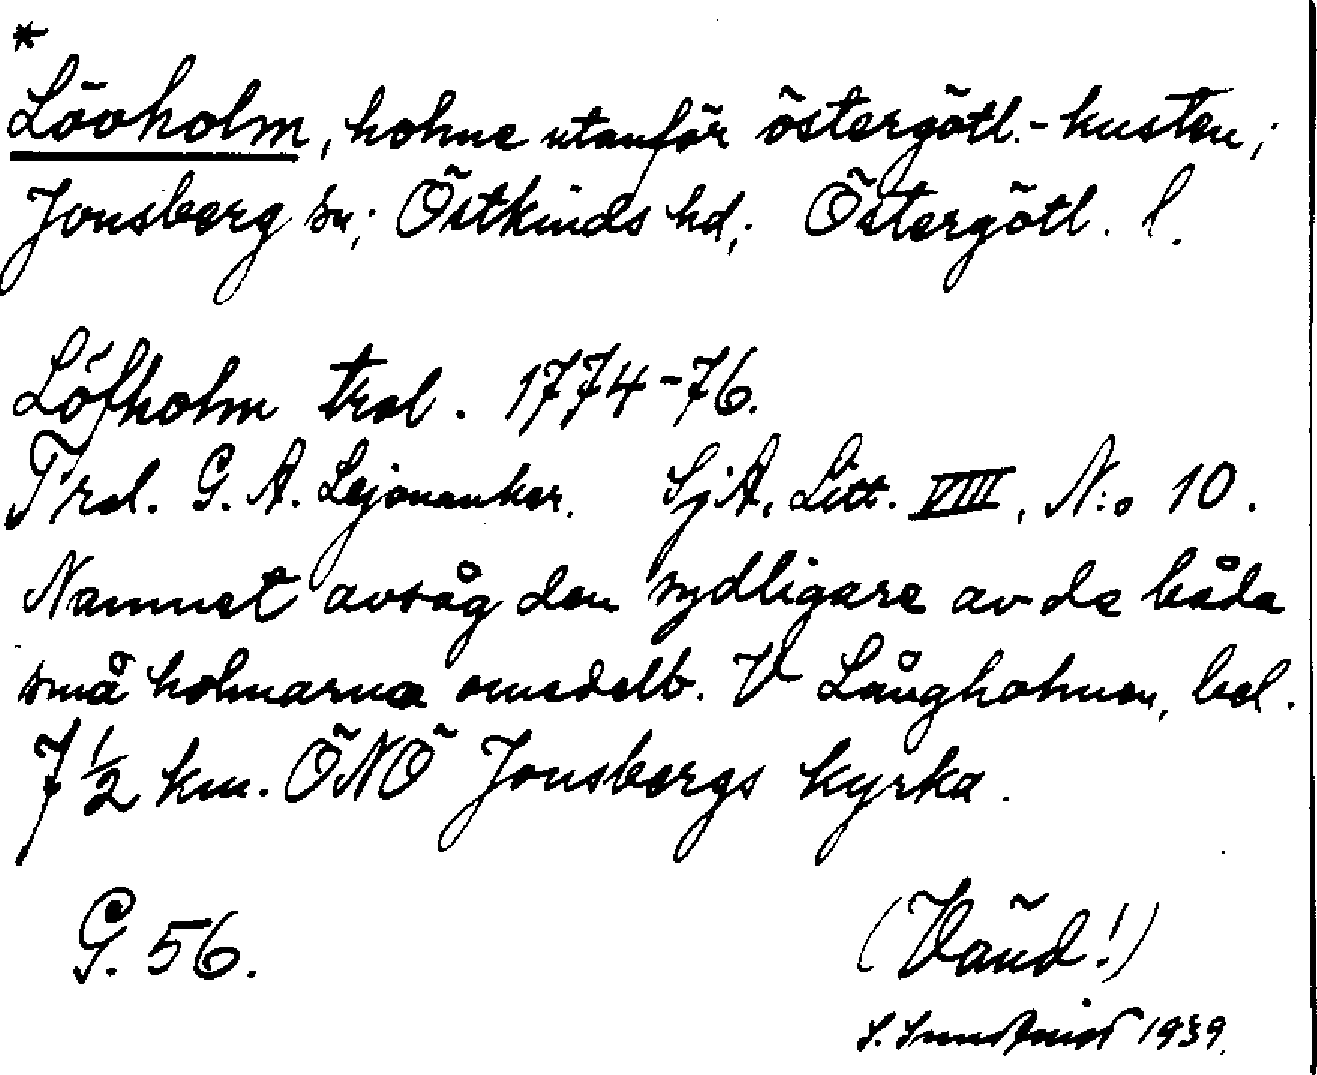 *
Lövholm, holme utanför östergötl.-kusten;
Jonsberg sn; Östkinds hd; Östergötl. l.
Löfholm trol. 1774-76.
Trol. G. A. Lejonanker. SjA, Litt. VIII, N:o 10.
Namnet avsåg den sydligare av de båda
små holmarna omedelb. V Långholmen, bel.
7 1/2 km. ÖNÖ Jonsbergs kyrka.
G. 56.
(Vänd!)
1939.